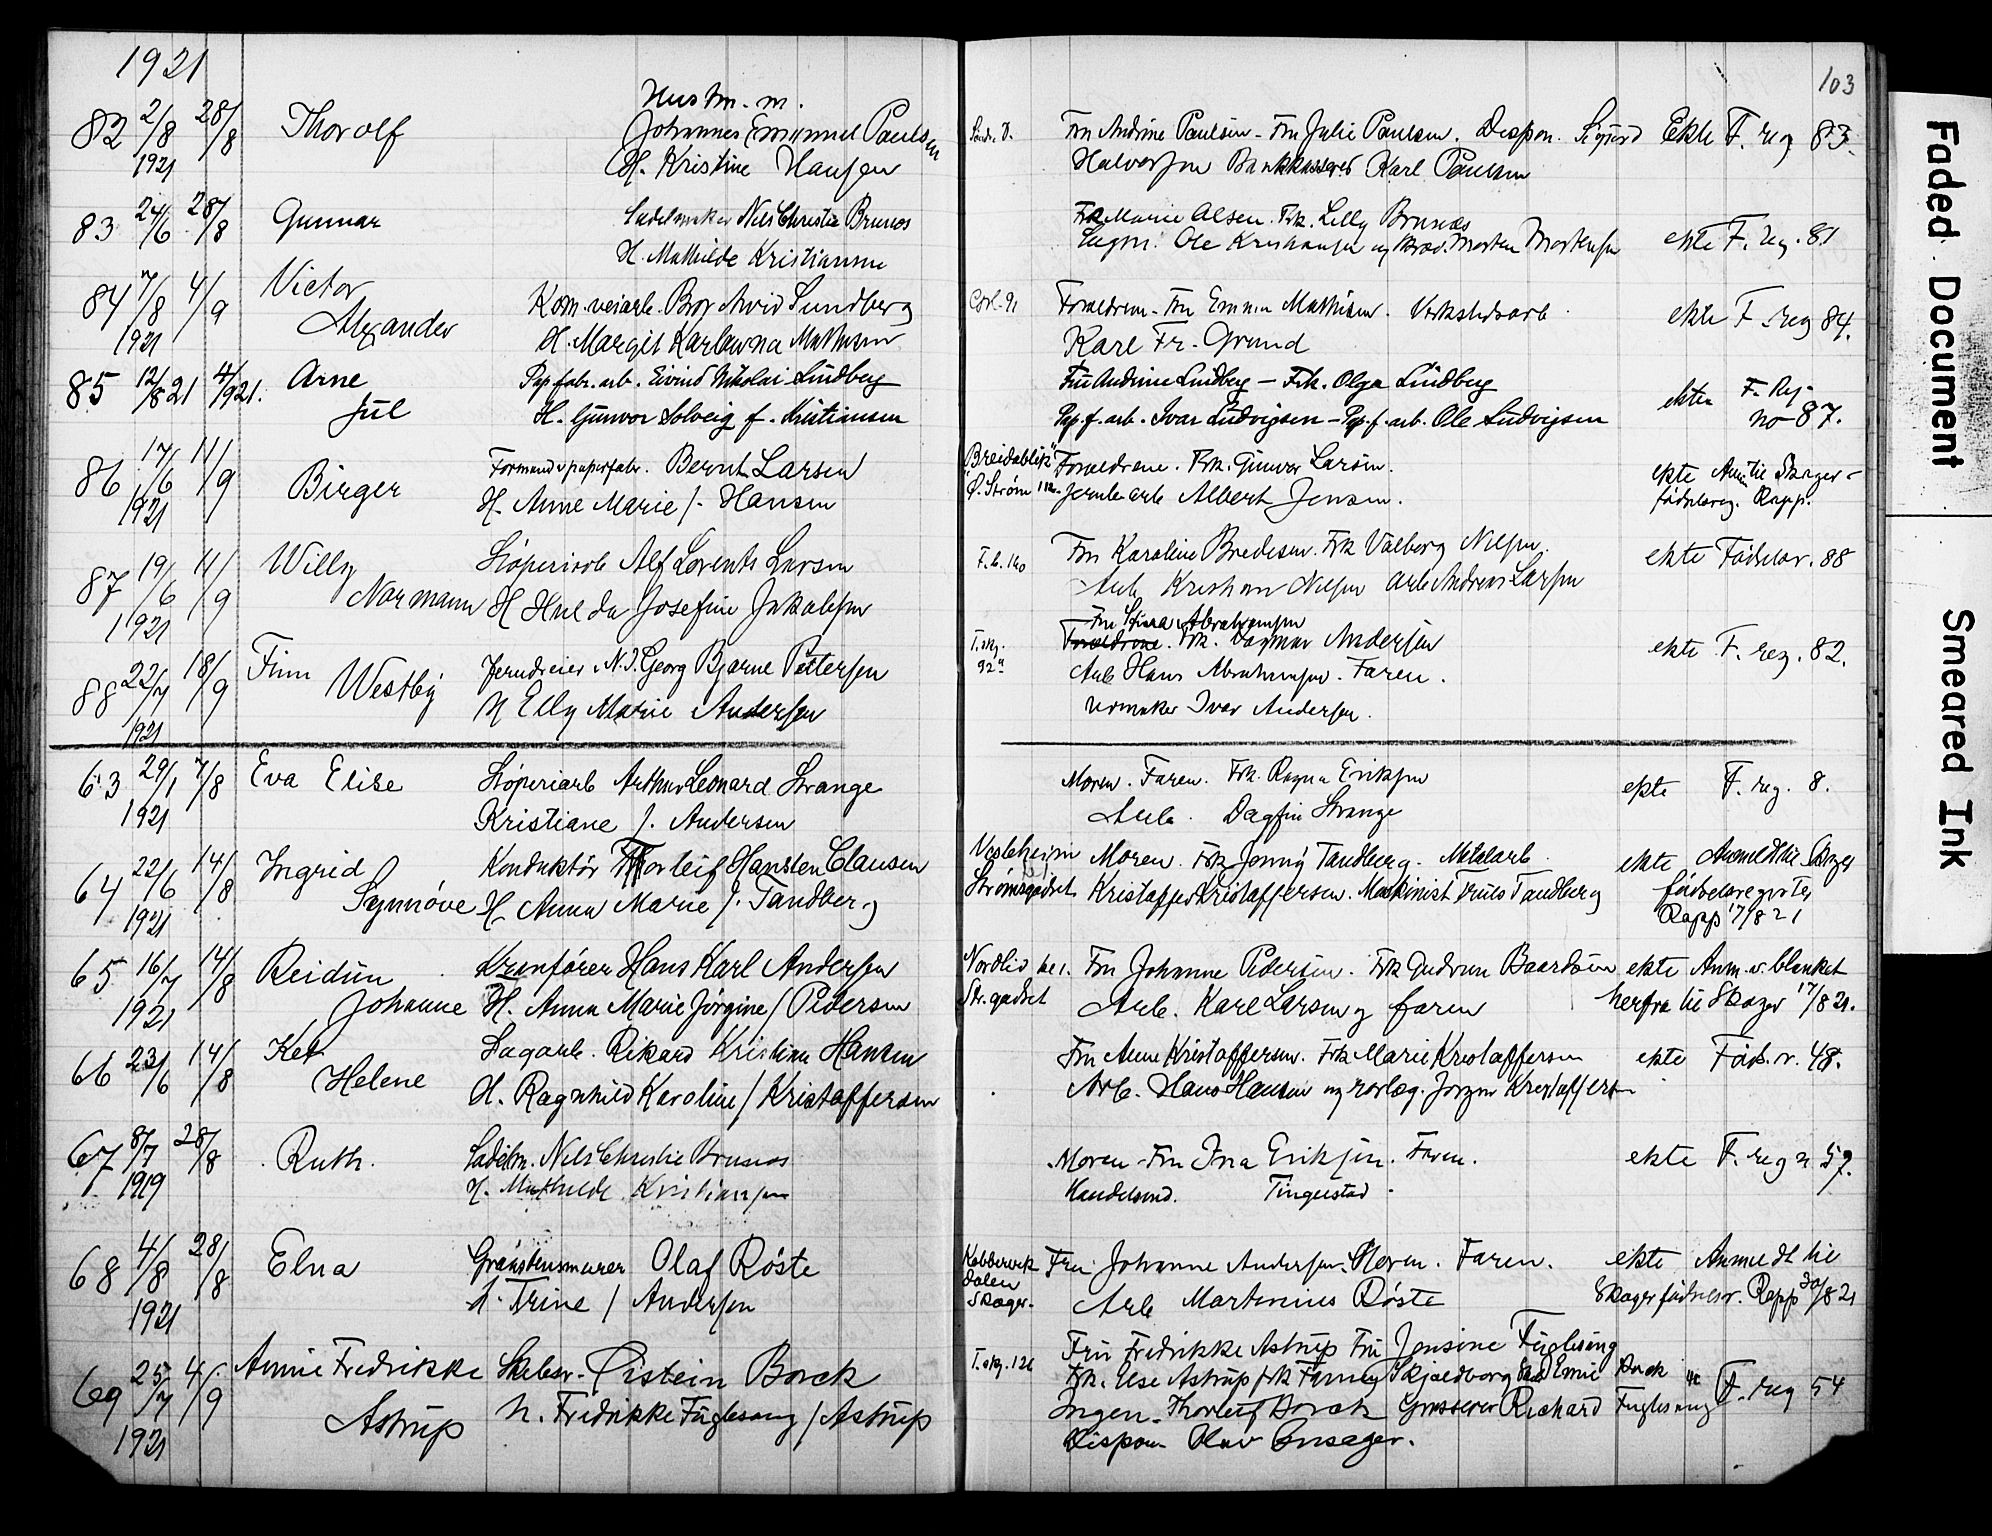 1921
103
82 2/8 28/8 Thorolf Husm. m.
1921 Johannes Emanuel Paulsen
H. Kristine Hansen
Fru Andrine Paulsen - Fru Julie Paulsen. Dispon. Sigurd Ekte F. reg 83.
Halvorsen Bankkasserer Karl Paulsen
83 24/6 28/8 Gunnar Sadelmaker Nils Christie Brunos
H. Mathilde Kristiansen
Frk Marie Olsen. Frk. Lilly Brunæs
Ole Kristiansen og Morten Mortensen ekte F. reg. 81
84 7/8 4/9 Victor
1921 Alexander
Kom. veiarb. Arvid Sundberg
H. Margit Karlawna Mathisen
Forældrene - Fru Emma Mathisen. Verkstedsarb.
Karl Fr. Grund ekte F. reg 84.
85 12/8 21 4/9 21. Arne
Jul
Papfabr. arb. Eivind Nikolai Lindberg
H. Gunvor Solveig f. Kristiansen
Fru Andrine Lindberg - Frk. Olga Lindberg
Pap. f. arb. Ivar Ludvigsen - Pap. f. arb. Ole Ludvigsen
ekte F. Reg
no 87.
86 17/6 11/9 Birger
1921
Formand v papirfabr. Bernt Larsen
H. Anne Marie f. Hansen
"Breidablik"
Ø. Strøm
Forældrene. Frk. Gunvor Larsen.
Jernbarb Albert Jensen.
ekte Anm. til Skoger
fødselsreg. Rapp.
87 19/6 11/9 Willy
1921 Normann
Støperiarb Alf Lorents Larsen
H Hulda Josefine Jakobsen
Fru Karoline Bredesen. Frk Valborg Nilsen.
Arb. Kristian Nilsen Arb Andreas Larsen
ekte Fødselsr. 88
88 22/7 18/9 Finn
1921 Westby
Jerndreier v. N.I. Georg Bjarne Pettersen
H Elly Marie Andersen
Fru Abrahamsen
Forældrene. Frk. Dagmar Andersen
Arb Hans Abrahamsen. Faren.
Urmaker Ivar Andersen.
ekte F. reg. 82.
63 29/1 7/8 Eva Elise
1921
Støperiarb Arthur Leonard Strange
Kristiane f. Andersen
Moren. Faren. Frk. Ragna Eriksen
Arb. Dagfin Strange
ekte F. reg. 8.
64 22/6 14/8 Ingrid
1921 Synnøve
Konduktør Thorleif Hansten Clausen
H. Anna Marie f. Tandberg
Vesleheim
Strømsgodset
Moren. Frk Jenny Tandberg. Metalarb.
Kristoffer Kristoffersen. Maskinist Truls Tandberg
ekte Anmeldt til Skoger
fødselsregister
Rapp 17/8 21
65 16/7 14/8 Reidun
1921 Johanne
Kranfører Hans Karl Andersen
H. Anna Marie Jørgine f Pedersen
Nordlid
Str. godset
Fru Johanne Pedersen. Frk Gudrun Baardsen
Arb. Karl Larsen og faren
ekte Anm. v. blanket
herfra til Skoger 17/8 21.
66 23/6 14/8
Helene
Sagarb. Rikard Kristian Hansen
H. Ragnhild Karoline f Kristoffersen
Fru Anne Kristoffersen. Frk Marie Kristoffersen
Arb. Hans Hansen og rørlæg. Jørgen Kristoffersen
ekte Føds. r. 48.
67 8/7 28/8 Ruth.
1919
Sadelm. Nils Christie Brunos
H. Mathilde Kristiansen
Moren - Fru Ina Eriksen. Faren.
Handelsmd. Tingelstad.
ekte F. reg n. 57.
68 4/8 28/8 Elna
1921
Graastensmurer Olaf Røste
H. Trine f Andersen
Kobbervik
dalen
Skoger.
Fru Johanne Andersen. Moren. Faren.
Arb Martinius Røste
ekte Anmeldt til
Skoger fødselsr. Rapp 30/8 21
69 25/7 4/9 Annie Fredrikke
1921 Astrup
Skibsr. Øistein Borck
H. Fredrikke Fuglesang f Astrup
T. okg. 126
Fru Fredrikke Astrup Fru Jensine Fuglesang
Frk. Else Astrup frk Fanny Skjoldborg Emil Borck
Ingen. Thorleif Borck Grosserer Richard Fuglesang
Dispon Olav Onsager.
F. reg 54